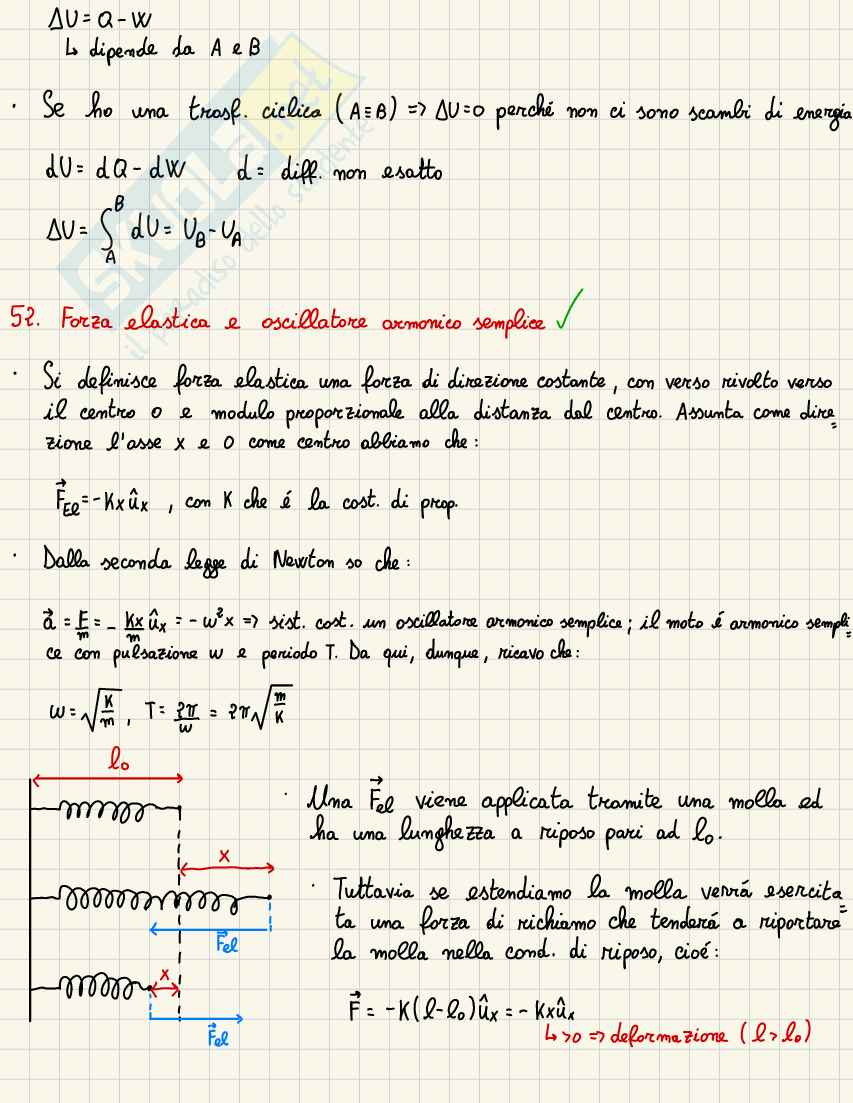 ΔU = Q - W
↳ dipende da A e B
· Se ho una trasf. ciclica (A≡B) => ΔU=0 perché non ci sono scambi di energia
dU = dQ - dW d = diff. non esatto
ΔU = ∫_A^B dU = U_B - U_A
SKUOLA.net
il paradiso dello studente
52. Forza elastica e oscillatore armonico semplice ✓
· Si definisce forza elastica una forza di direzione costante, con verso rivolto verso
il centro O e modulo proporzionale alla distanza dal centro. Assunta come dire=
zione l'asse x e O come centro abbiamo che:
F⃗_El = -Kx û_x , con K che é la cost. di prop.
· Dalla seconda legge di Newton so che:
a⃗ = F/m = - Kx/m û_x = -ω²x => sist. cost. un oscillatore armonico semplice; il moto é armonico sempli=
ce con pulsazione ω e periodo T. Da qui, dunque, ricavo che:
ω = √(K/m), T = 2π/ω = 2π√(m/K)
l₀
· Una F⃗_el viene applicata tramite una molla ed
ha una lunghezza a riposo pari ad l₀.
x
· Tuttavia se estendiamo la molla verrá esercita=
ta una forza di richiamo che tenderá a riportare
F⃗_el
la molla nella cond. di riposo, cioé:
x
F⃗ = -K(l-l₀)û_x = -Kxû_x
F⃗_el
↳ >0 => deformazione (l > l₀)